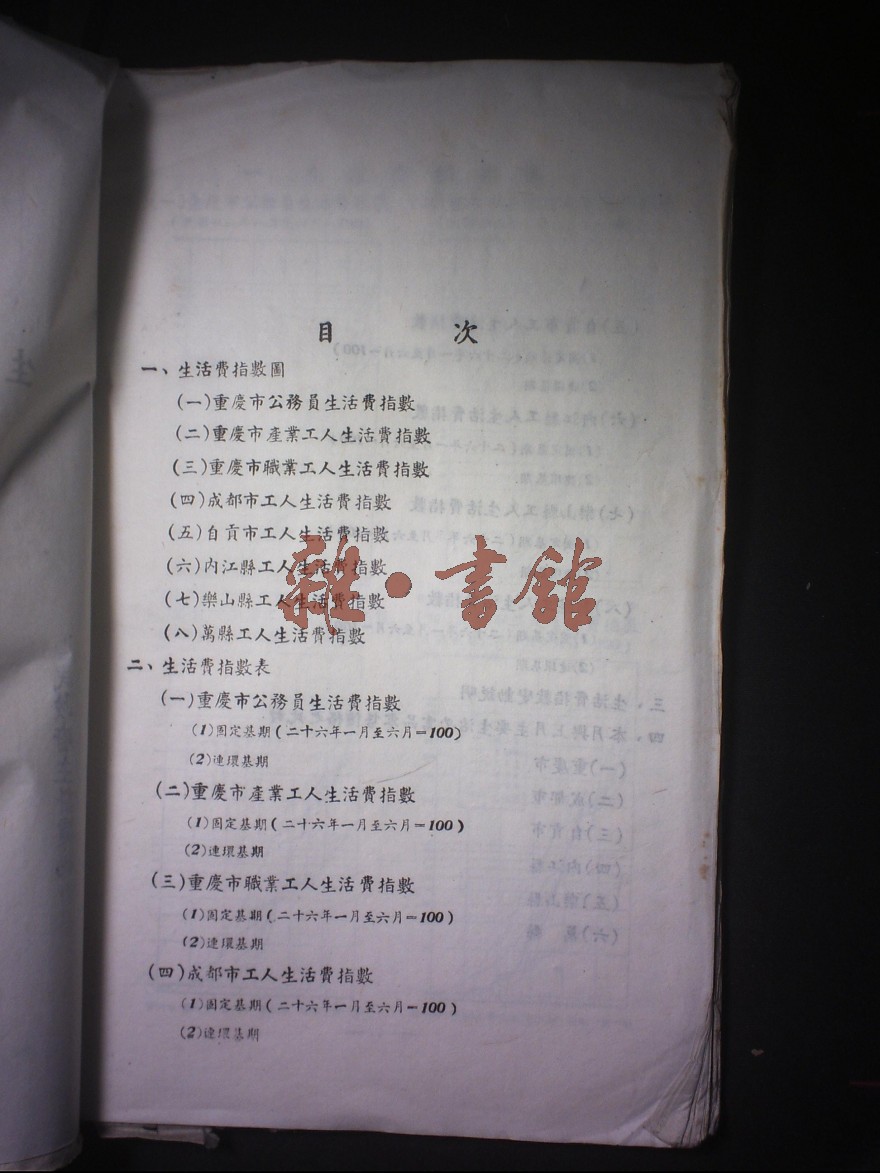 目 次
一、生活費指數圖
(一)重慶市公務員生活費指數
(二)重慶市產業工人生活費指數
(三)重慶市職業工人生活費指數
(四)成都市工人生活費指數
(五)自貢市工人生活費指數
(六)內江縣工人生活費指數
(七)樂山縣工人生活費指數
(八)萬縣工人生活費指數
二、生活費指數表
(一)重慶市公務員生活費指數
(1)固定基期(二十六年一月至六月=100)
(2)連環基期
(二)重慶市產業工人生活費指數
(1)固定基期(二十六年一月至六月=100)
(2)連環基期
(三)重慶市職業工人生活費指數
(1)固定基期(二十六年一月至六月=100)
(2)連環基期
(四)成都市工人生活費指數
(1)固定基期(二十六年一月至六月=100)
(2)連環基期
雜·書館